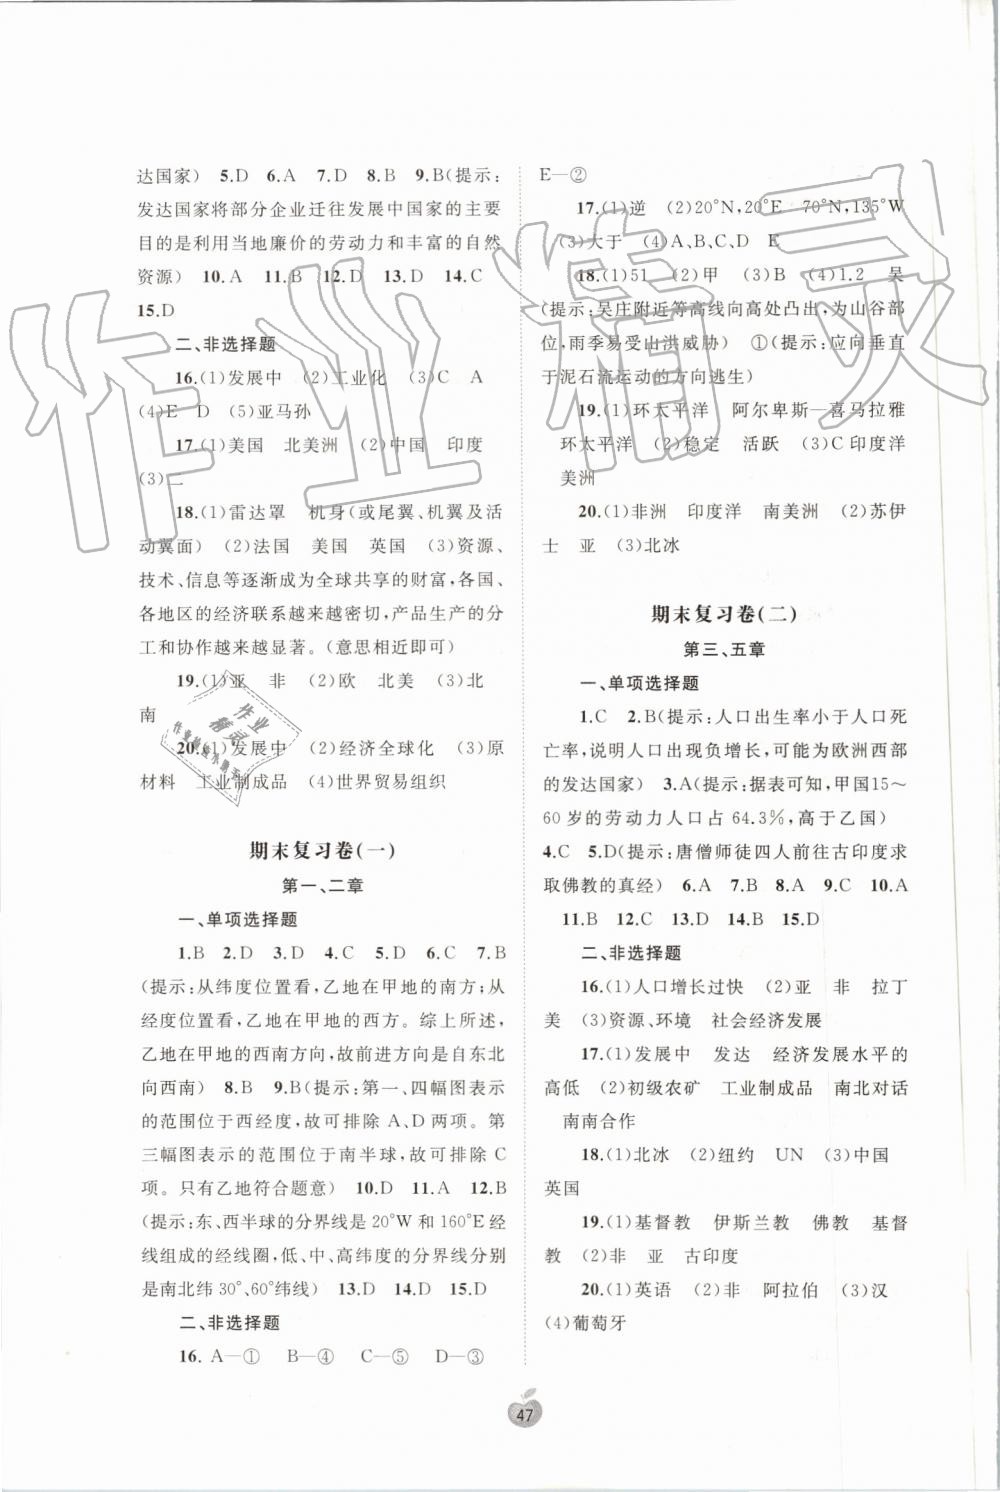 达国家) 5.D 6.A 7.D 8.B 9.B(提示:
发达国家将部分企业迁往发展中国家的主要
目的是利用当地廉价的劳动力和丰富的自然
资源) 10.A 11.B 12.D 13.D 14.C
15.D
二、非选择题
16.(1)发展中 (2)工业化 (3)C A
(4)E D (5)亚马孙
17.(1)美国 北美洲 (2)中国 印度
(3)二
18.(1)雷达罩 机身(或尾翼、机翼及活
动翼面) (2)法国 美国 英国 (3)资源、
技术、信息等逐渐成为全球共享的财富,各国、
各地区的经济联系越来越密切,产品生产的分
工和协作越来越显著。(意思相近即可)
19.(1)亚 非 (2)欧 北美 (3)北
南
20.(1)发展中 (2)经济全球化 (3)原
材料 工业制成品 (4)世界贸易组织
期末复习卷(一)
第一、二章
一、单项选择题
1.B 2.D 3.D 4.C 5.D 6.C 7.B
(提示:从纬度位置看,乙地在甲地的南方;从
经度位置看,乙地在甲地的西方。综上所述,
乙地在甲地的西南方向,故前进方向是自东北
向西南) 8.B 9.B(提示:第一、四幅图表示
的范围位于西经度,故可排除 A、D 两项。第
三幅图表示的范围位于南半球,故可排除 C
项。只有乙地符合题意) 10.D 11.A 12.B
(提示:东、西半球的分界线是 20°W 和 160°E 经
线组成的经线圈,低、中、高纬度的分界线分别
是南北纬 30°、60°纬线) 13.D 14.D 15.D
二、非选择题
16. A—① B—④ C—⑤ D—③
E—②
17.(1)逆 (2)20°N,20°E 70°N,135°W
(3)大于 (4)A、B、C、D E
18.(1)51 (2)甲 (3)B (4)1.2 吴
(提示:吴庄附近等高线向高处凸出,为山谷部
位,雨季易受山洪威胁) ①(提示:应向垂直
于泥石流运动的方向逃生)
19.(1)环太平洋 阿尔卑斯—喜马拉雅
环太平洋 (2)稳定 活跃 (3)C 印度洋
美洲
20.(1)非洲 印度洋 南美洲 (2)苏伊
士 亚 (3)北冰
期末复习卷(二)
第三、五章
一、单项选择题
1.C 2.B(提示:人口出生率小于人口死
亡率,说明人口出现负增长,可能为欧洲西部
的发达国家) 3.A(提示:据表可知,甲国15～
60 岁的劳动力人口占 64.3%,高于乙国)
4.C 5.D(提示:唐僧师徒四人前往古印度求
取佛教的真经) 6.A 7.B 8.A 9.C 10.A
11.B 12.C 13.D 14.B 15.D
二、非选择题
16.(1)人口增长过快 (2)亚 非 拉丁
美 (3)资源、环境 社会经济发展
17.(1)发展中 发达 经济发展水平的
高低 (2)初级农矿 工业制成品 南北对话
南南合作
18.(1)北冰 (2)纽约 UN (3)中国
英国
19.(1)基督教 伊斯兰教 佛教 基督
教 (2)非 亚 古印度
20.(1)英语 (2)非 阿拉伯 (3)汉
(4)葡萄牙
47
作业精灵
作业
精灵